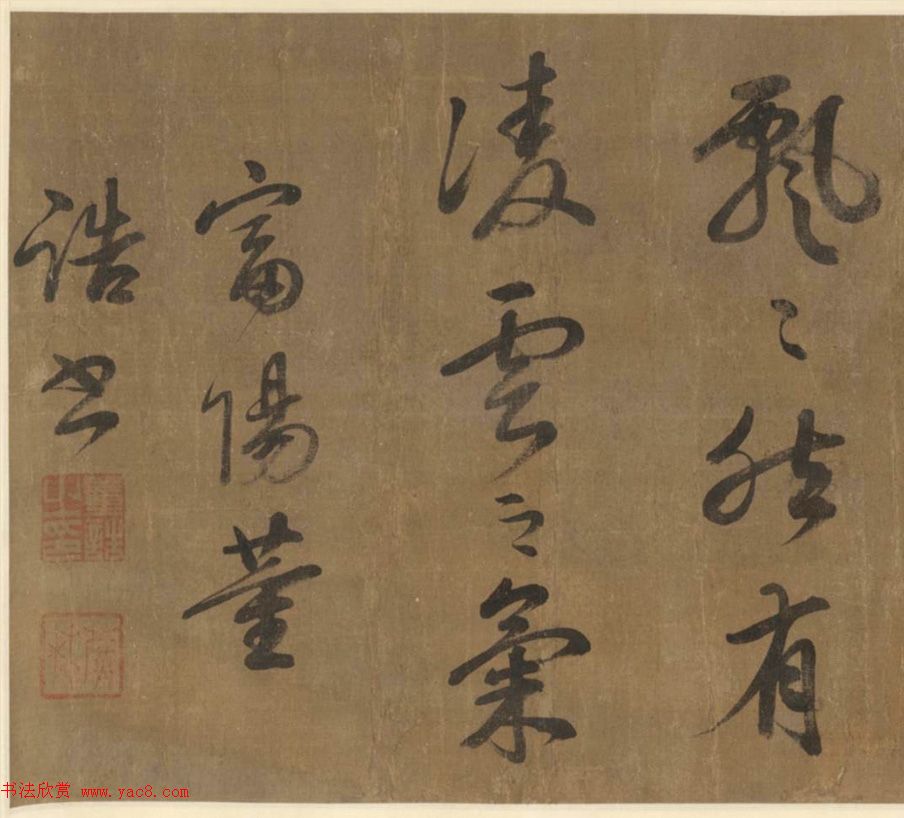 飄〻然有
凌雲之氣
富陽董
誥書
董誥之印
书法欣赏 www.yac8.com